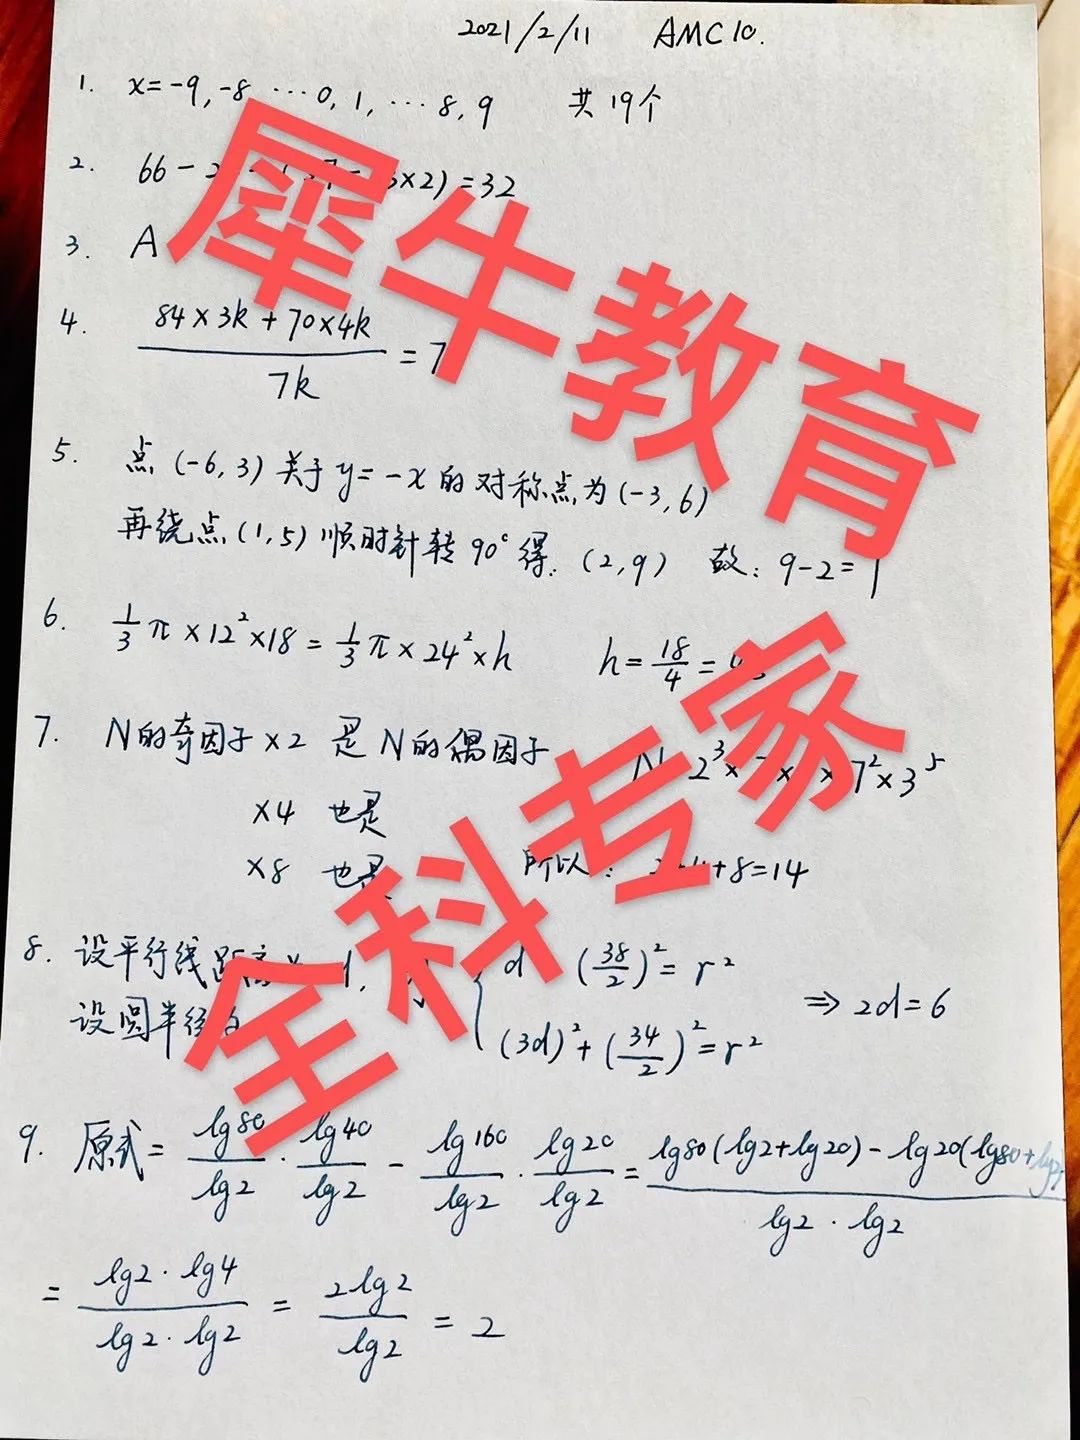 2021/2/11 AMC10.
1. x=-9,-8 ... 0,1, ... 8,9 共19个
2. 66 - 2 ×2) = 32
3. A
4. (84×3k+70×4k)/7k = 7
5. 点(-6,3)关于y=-x的对称点为(-3,6)
再绕点(1,5)顺时针转90°得:(2,9) 故: 9-2=
6. 1/3 π×12²×18 = 1/3 π×24²×h h=18/4=
7. N的奇因子×2 是N的偶因子 N 2³× × ×7²×3⁵
×4 也是
×8 也是 所以: +8=14
8. 设平行线距 d, d (38/2)²=r²
设圆半径 (3d)²+(34/2)²=r² ⇒ 2d=6
9. 原式= lg80/lg2 · lg40/lg2 - lg160/lg2 · lg20/lg2 = (lg80(lg2+lg20)-lg20(lg80+lg2))/(lg2·lg2)
= (lg2·lg4)/(lg2·lg2) = 2lg2/lg2 = 2
犀牛教育
全科专家